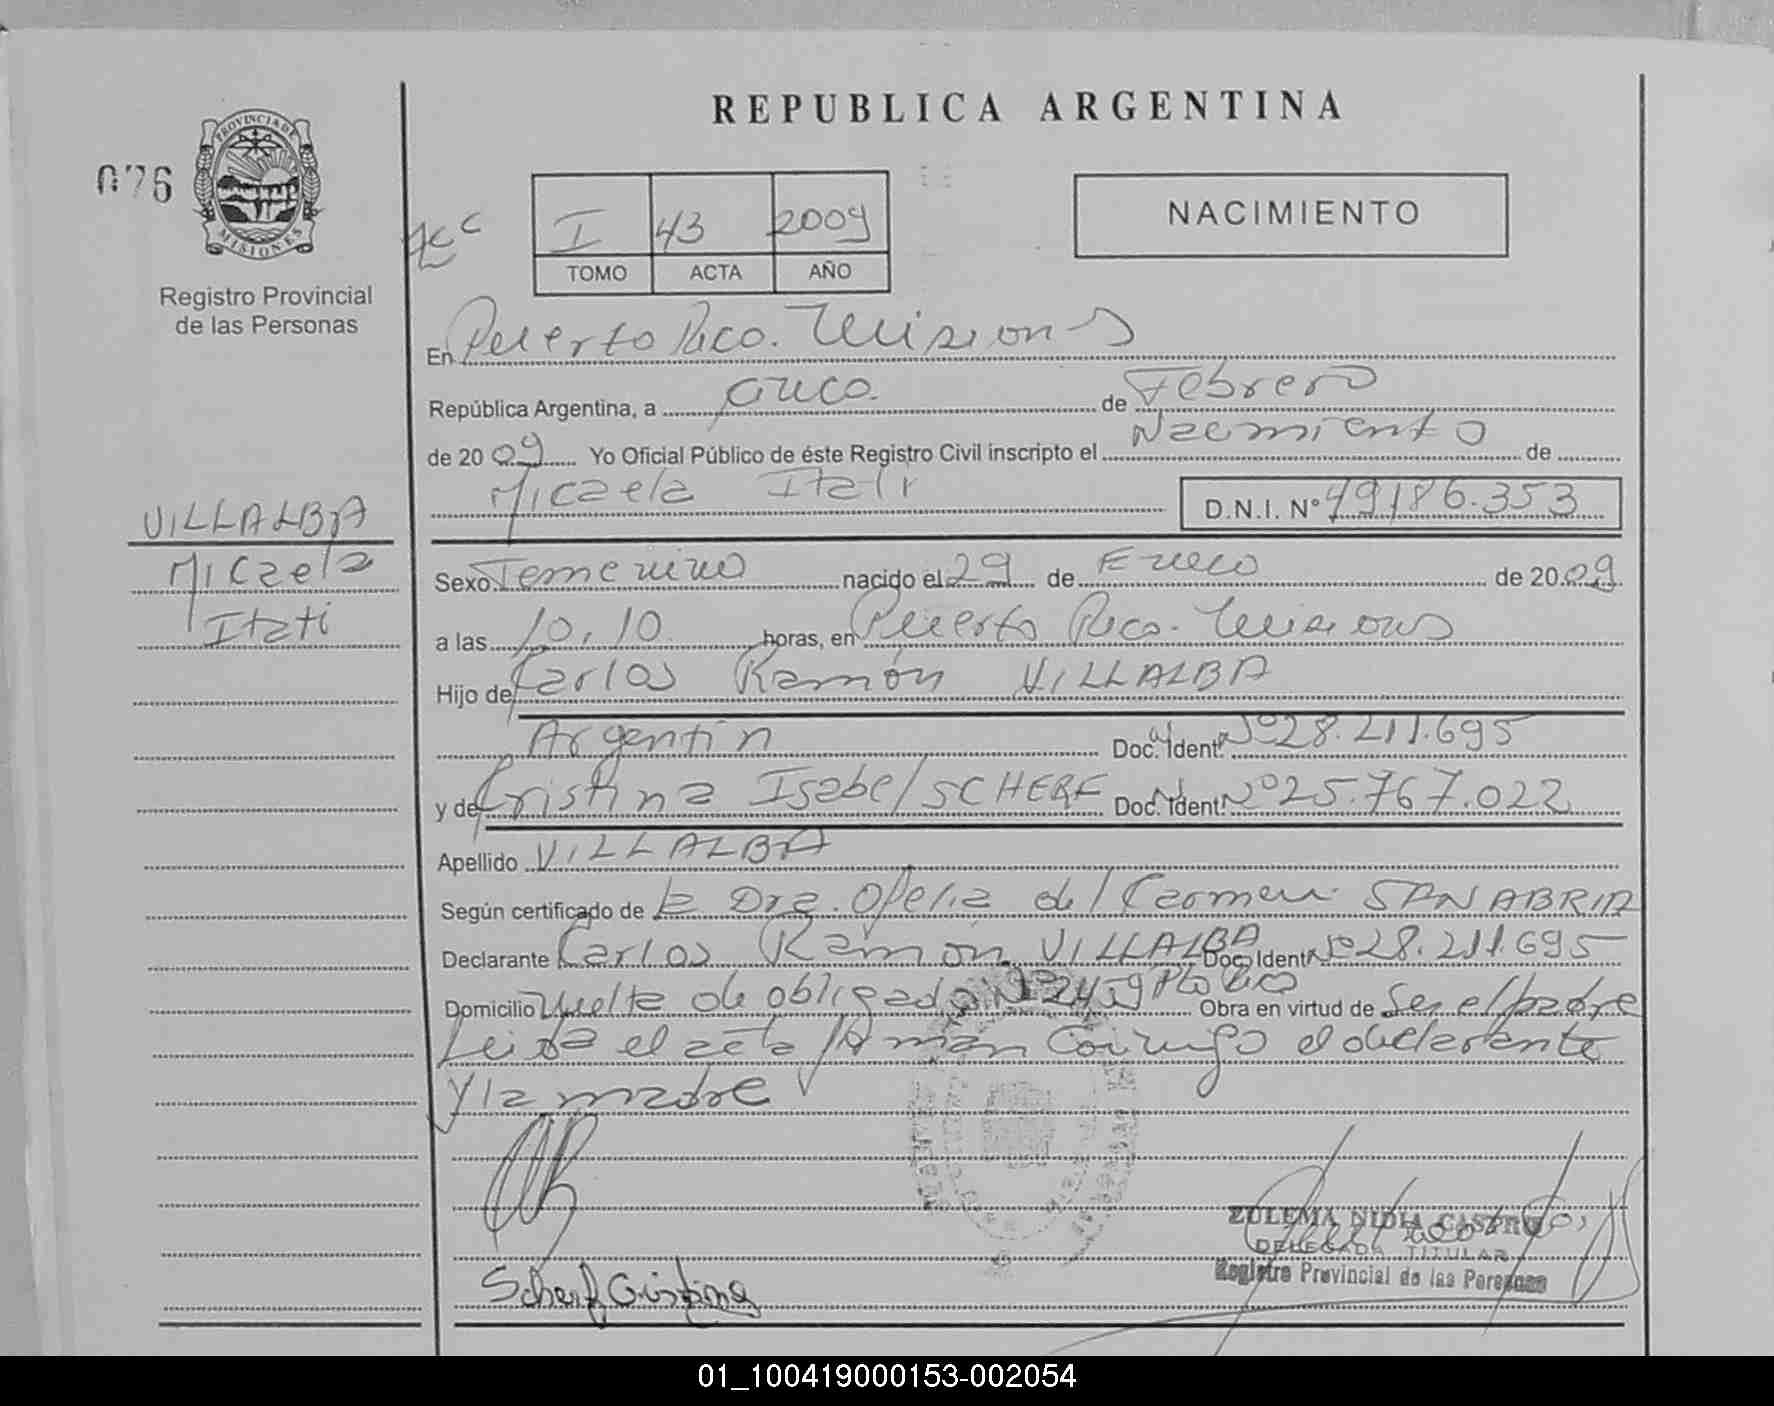 REPUBLICA ARGENTINA
PROVINCIA DE MISIONES
076
Registro Provincial
de las Personas
I 43 2009
TOMO ACTA AÑO
NACIMIENTO
En Puerto Rico. Misiones
República Argentina, a cinco de Febrero
de 2009 Yo Oficial Público de éste Registro Civil inscripto el Nacimiento de
Micaela Itati D.N.I. Nº 49186.353
VILLALBA
Micaela
Itati
Sexo Femenino nacido el 29 de Enero de 2009
a las 10,10 horas, en Puerto Rico - Misiones
Hijo de Carlos Ramón VILLALBA
Argentin Doc. Ident. Nº 28.211.695
y de Cristina Isabel SCHERF Doc. Ident. Nº 25.767.022
Apellido VILLALBA
Según certificado de la Dra. Ofelia del Carmen SANABRIA
Declarante Carlos Ramón VILLALBA Doc. Ident. Nº 28.211.695
Domicilio Vuelta de obligado Nº 2459 Pto Rico Obra en virtud de Ser el padre
Leida el acta firman Conmigo el declarante
y la madre
Scherf Cristina
ZULEMA NIDIA CASTRO
DELEGADA TITULAR
Registro Provincial de las Personas
01_100419000153-002054